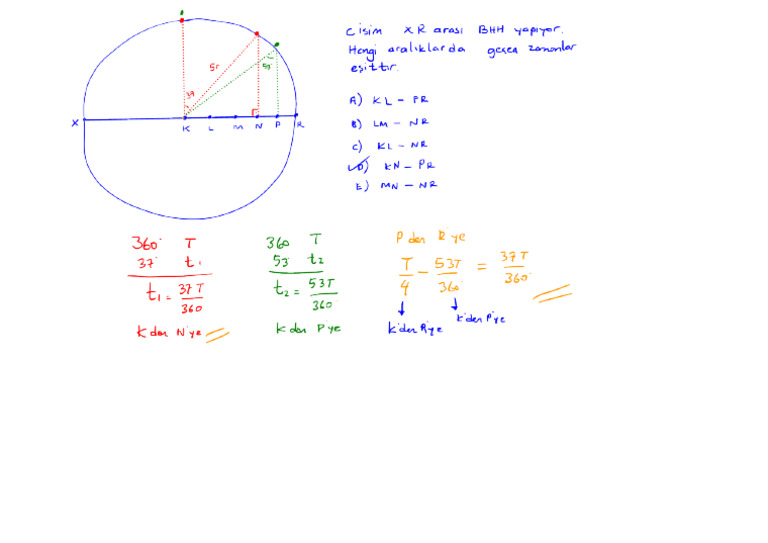 Cisim XR arası BHH yapıyor.
Hangi aralıklarda geçen zamanlar
eşittir.
A) KL - PR
B) LM - NR
C) KL - NR
D) KN - PR
E) MN - NR
37
53
X K L M N P R
360° T
37° t₁
t₁ = 37T/360
K dan N'ye
360 T
53° t₂
t₂ = 53T/360°
K dan P ye
P den R ye
T/4 - 53T/360° = 37T/360°
K'dan R'ye
K'dan P'ye